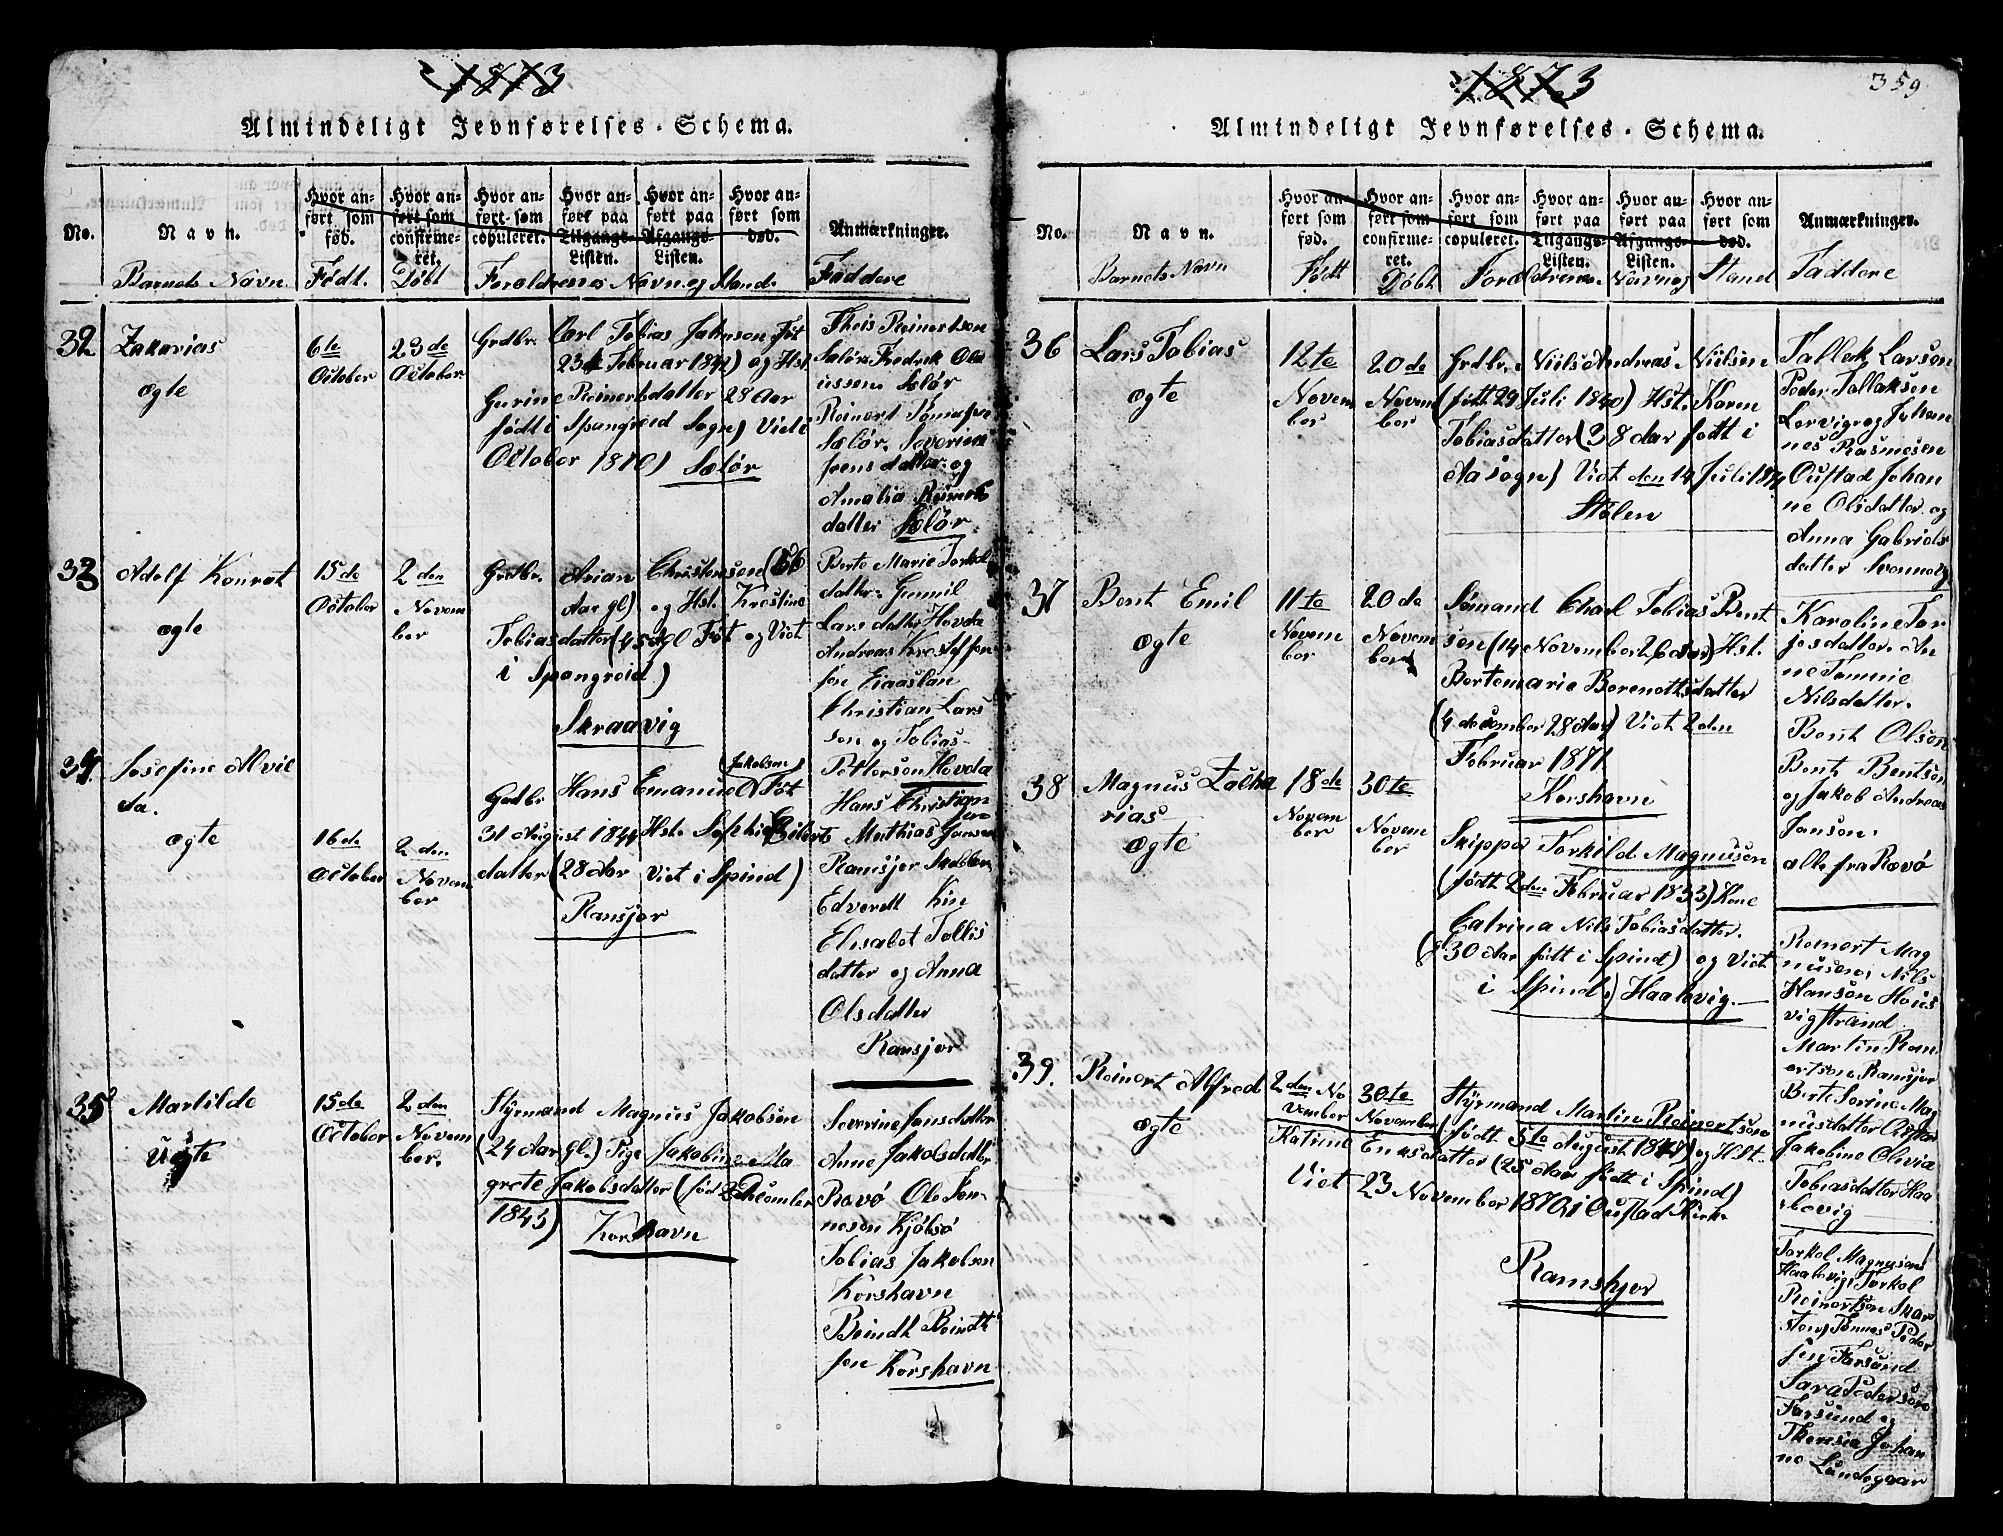 1873
Almindeligt Jevnførelses-Schema.
No.
Navn.
Hvor an-
ført som
fød.
Hvor an-
ført som
confirme-
ret.
Hvor an-
ført som
copuleret.
Hvor an-
ført paa
Tilgangs-
Listen.
Hvor an-
ført paa
Afgangs-
Listen.
Hvor an-
ført som
død.
Anmærkninger.
Barnets Navn
Født.
Døbt
Forældrenes Navn og Stand.
Faddere
32
Zakarias
ægte
6te
October
23de
October
Grdbr. Carl Tobias Jahnson Føt
Februar og Hst.
Gurine Reinertsdatter 28 Aar
født i Spangreid Sogn) Viet i
October 1870) Sælør
Theis Reinertson
Sælør Fredrik Ola
ussen Sælør
Reinert
Sælør. Severine
Jensdatter og
Amalia Reinerts
datter Sælør
33
Adolf Konrat
ægte
15de
October
2den
Novem
ber
Grdbr. Arian Christensen (56
Aar gl) og Hst. Krestine
Tobiasdatter (45 gl Føt og Viet
i Spangreid)
Skraavig
Berte Marie Torkel
datter Gunnil
Larsdatter Hovda
Andreas Kristoffen
sen
Christian Lars
sen og Tobias
Pettersen Hovda
34.
Josefine Alvil
da.
ægte
16de
October
2den
Novem
ber
Grdbr Hans Emanuel Jakobsen Føt
31 August 1844 Hst. Sophie Eilerts
datter (28 Aar Viet i Spind)
Ransjor
Hans Christian
sen
Mathias Jansen
Ramsjer
Edverdt
Elisabet Tollis
datter og Anna
Olsdatter
Ransjor
35
Martilde
Uægte
15de
October
2den
Novem
ber.
Styrmand Magnus Jakobsen
(24 Aar gl.) Pige Jakobine Ma
grete Jakobsdatter (fød Decomber
1845)
Korshavn
Severine Jensdatter
Anne Jakobsdatter
Rævø Ole Ton-
nesen Kjøbsø
Tobias Jakobsen
Korshavn
Beindt Beindt
sen Korshavn
1873
359
Almindeligt Jevnførelses-Schema.
No.
Navn.
Hvor an-
ført som
fød.
Hvor an-
ført som
confirme-
ret.
Hvor an-
ført som
copuleret.
Hvor an-
ført paa
Tilgangs-
Listen.
Hvor an-
ført paa
Afgangs-
Listen.
Hvor an-
ført som
død.
Anmærkninger.
Barnets Navn
Født
Døbt
Forældrenes Navn og Stand
Faddere
36
Lars Tobias
ægte
12te
Novem
ber
20de
Novem
ber
Grdbr. Niils Andreas Niilsen
(født 29 Juli 1840) Hst. Karen
Tobiasdatter (38 Aar født i
Aa sogn) Viet den 14 Juli
Stølen
Tallek Larsen
Peder Tallaksen
Lervig og Johan
nes Rasmesen
Oustad Johan
ne Olsdatter og
Anna Gabriels
datter
37
Bent Emil
ægte
11te
Novem
ber
20de
Novem
ber
Sømand Charl Tobias Bent
sen (14 November 26 Aar) Hst.
Bertemarie Berenttsdatter
(4 december 28 Aar) Viet 2den
Februar 1871
Korshavn
Karoline Tor
jesdatter. An
ne Tomine
Nilsdatter.
Bent Olsen
Bent Bentsen
og Jakob Andreas
Janson.
alle fra Rævø
38
Magnus Zacha
rias
ægte
18de
Novem
ber
30te
Novem
ber
Skipper Torkild Magnusen
(født 2den Februar 1833) Kone
Catrina Nils Tobiasdatter.
(30 Aar født i Spind) og Viet
i Spind.) Haalovig.
Reinert Mag
nusen, Nils
Hanson Hous
vigstrand
Martin Rein
ertsen Ramsjer
Berte Sorine Mag
nusdatter Oustad
Jakobine Olivia
Tobiasdatter Haa
lovig
39.
Reinert Alfred
ægte
2den No
vember
30te
November
Styrmand Martin Reinertsen
(født 5te August) og Hst.
Katine Eriksdatter (25 Aar født i Spind)
Viet 23 November 1870 i Oustad Kirke
Ramshjer
Torkel Magnusen
Haalovig, Torkel
Reinertsen Skar
sten, Tønnes Peder
sen Farsund.
Sara Pedersen
Farsund og
Theresia Johan
ne Lundegaar